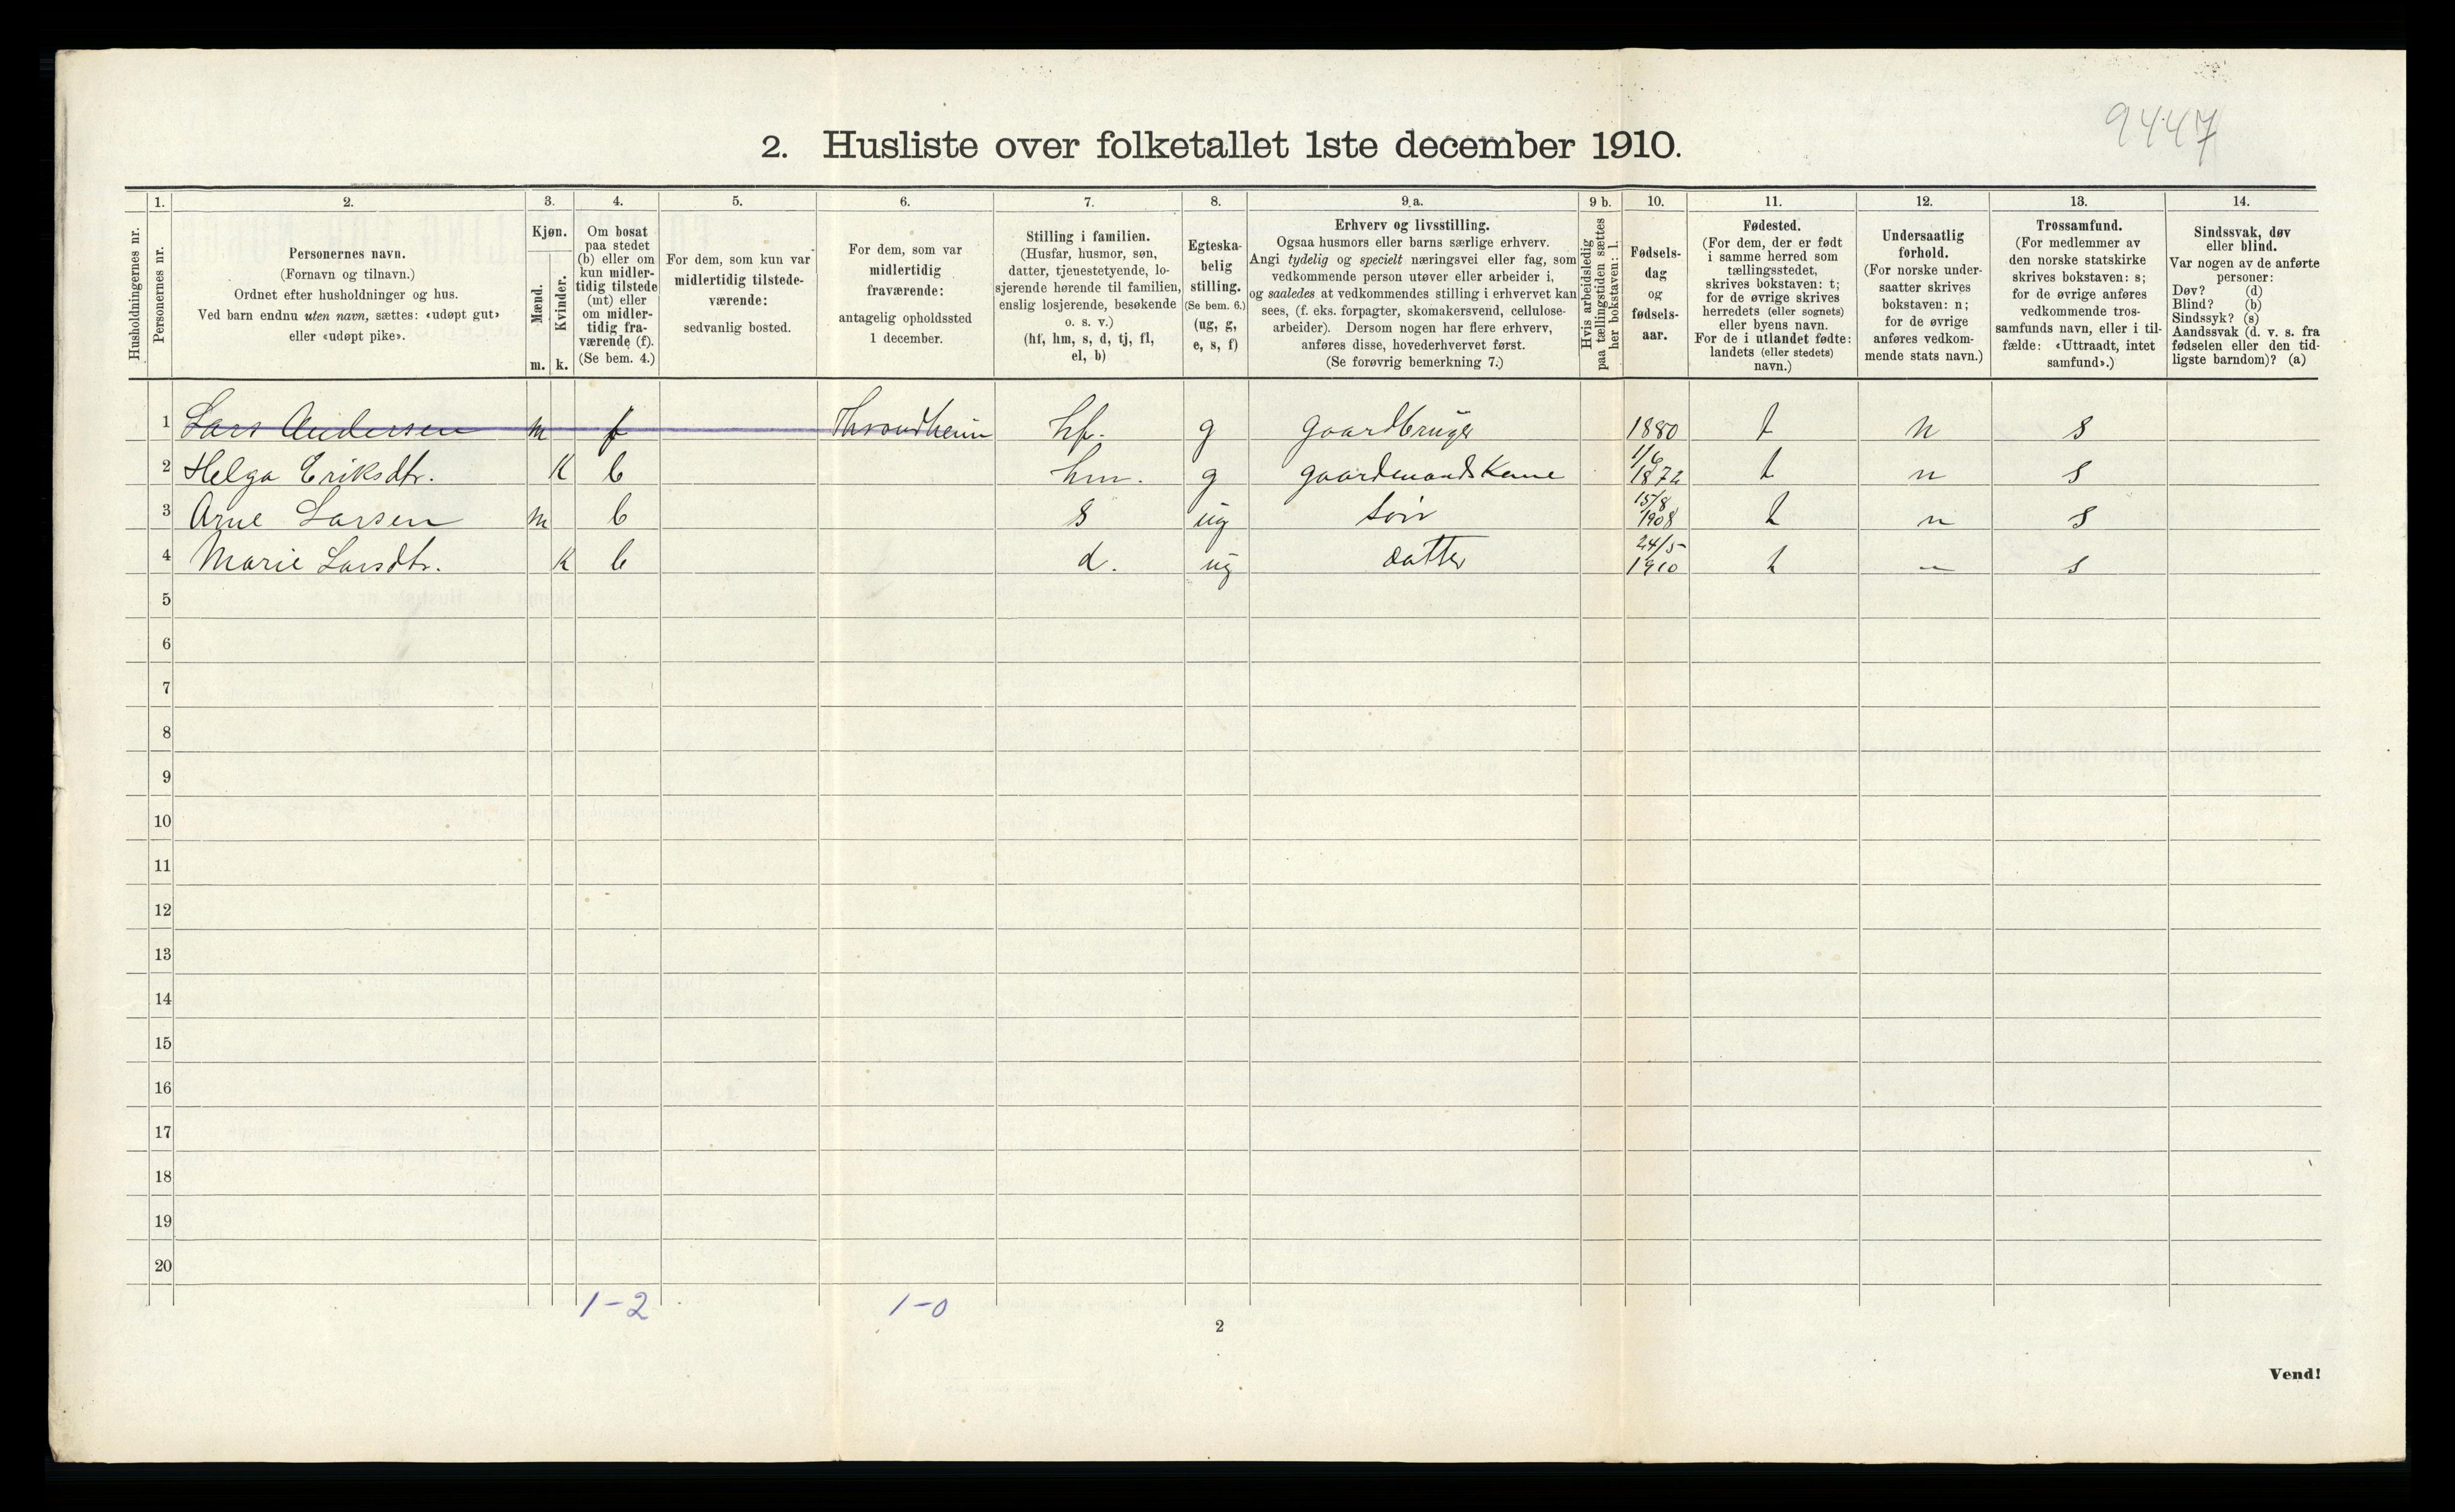 9447
2. Husliste over folketallet 1ste december 1910.
1. 2. 3. 4. 5. 6. 7. 8. 9 a. 9 b. 10. 11. 12. 13. 14.
Husholdningernes nr.
Personernes nr.
Personernes navn.
(Fornavn og tilnavn.)
Ordnet efter husholdninger og hus.
Ved barn endnu uten navn, sættes: «udøpt gut»
eller «udøpt pike».
Kjøn.
Mænd.
Kvinder.
m. k.
Om bosat
paa stedet
(b) eller om
kun midler-
tidig tilstede
(mt) eller
om midler-
tidig fra-
værende (f).
(Se bem. 4.)
For dem, som kun var
midlertidig tilstede-
værende:
sedvanlig bosted.
For dem, som var
midlertidig
fraværende:
antagelig opholdssted
1 december.
Stilling i familien.
(Husfar, husmor, søn,
datter, tjenestetyende, lo-
sjerende hørende til familien,
enslig losjerende, besøkende
o. s. v.)
(hf, hm, s, d, tj, fl,
el, b)
Egteska-
belig
stilling.
(Se bem. 6.)
(ug, g,
e, s, f)
Erhverv og livsstilling.
Ogsaa husmors eller barns særlige erhverv.
Angi tydelig og specielt næringsvei eller fag, som
vedkommende person utøver eller arbeider i,
og saaledes at vedkommendes stilling i erhvervet kan
sees, (f. eks. forpagter, skomakersvend, cellulose-
arbeider). Dersom nogen har flere erhverv,
anføres disse, hovederhvervet først.
(Se forøvrig bemerkning 7.)
Hvis arbeidsledig
paa tællingstiden sættes
her bokstaven: l.
Fødsels-
dag
og
fødsels-
aar.
Fødested.
(For dem, der er født
i samme herred som
tællingsstedet,
skrives bokstaven: t;
for de øvrige skrives
herredets (eller sognets)
eller byens navn.
For de i utlandet fødte:
landets (eller stedets)
navn.)
Undersaatlig
forhold.
(For norske under-
saatter skrives
bokstaven: n;
for de øvrige
anføres vedkom-
mende stats navn.)
Trossamfund.
(For medlemmer av
den norske statskirke
skrives bokstaven: s;
for de øvrige anføres
vedkommende tros-
samfunds navn, eller i til-
fælde: «Uttraadt, intet
samfund».)
Sindssvak, døv
eller blind.
Var nogen av de anførte
personer:
Døv? (d)
Blind? (b)
Sindssyk? (s)
Aandssvak (d. v. s. fra
fødselen eller den tid-
ligste barndom)? (a)
1 Lars Andersen m f Throndheim hf. g gaardbruger 1880 t n s
2 Helga Eriksdtr. K b hm. g gaardmandskone 1/6 1872 t n s
3 Arne Larsen m b s ug søn 15/8 1908 t n s
4 Marie Larsdtr. K b d. ug datter 24/5 1910 t n s
5
6
7
8
9
10
11
12
13
14
15
16
17
18
19
20
1-2 1-0
2
Vend!